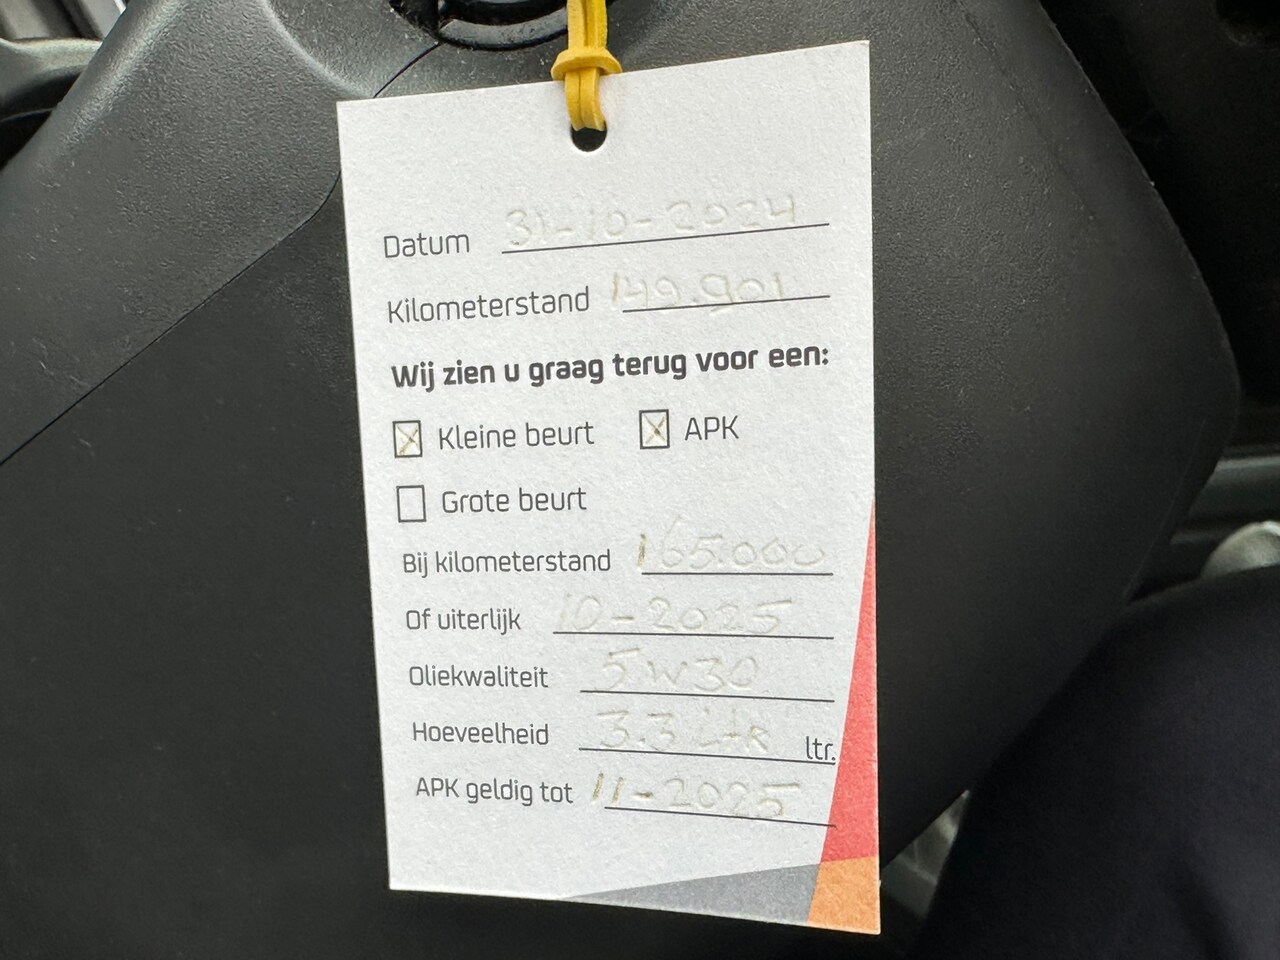 Datum 31-10-2024
Kilometerstand 149.901
Wij zien u graag terug voor een:
Kleine beurt APK
Grote beurt
Bij kilometerstand 165.000
Of uiterlijk 10-2025
Oliekwaliteit 5W30
Hoeveelheid 3.3 Ltr ltr.
APK geldig tot 11-2025